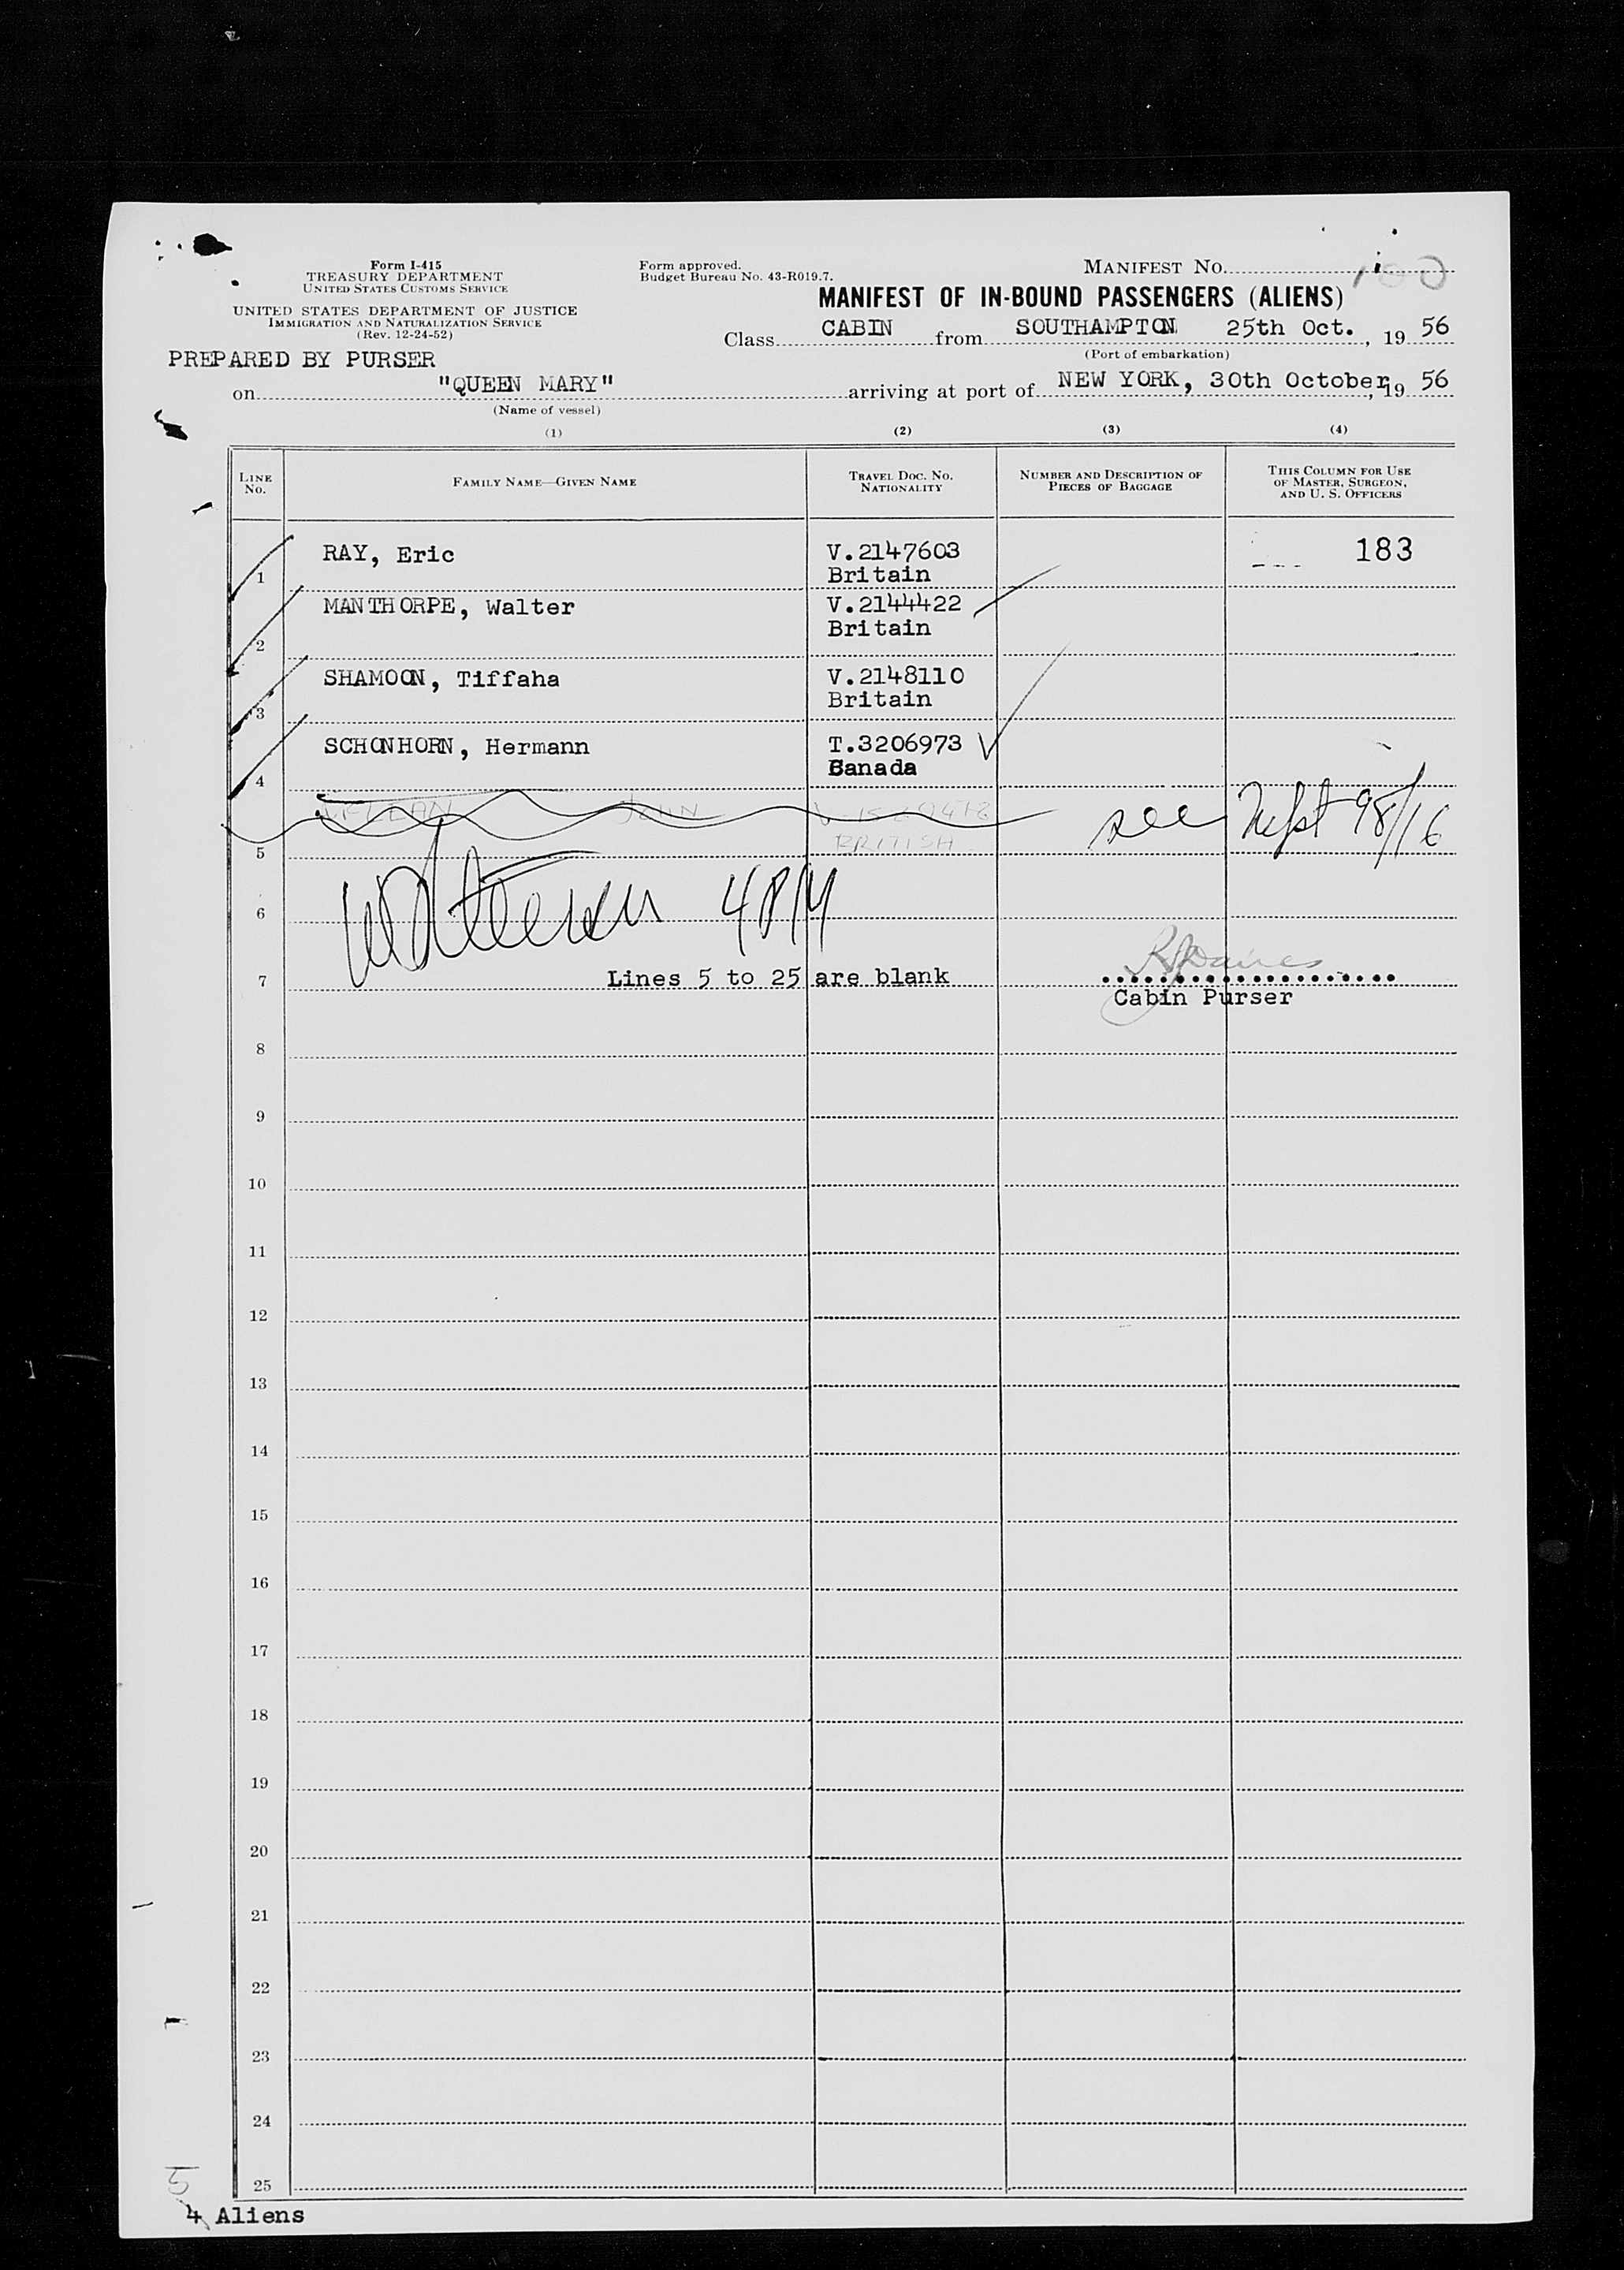 Form I-415
TREASURY DEPARTMENT
UNITED STATES CUSTOMS SERVICE
UNITED STATES DEPARTMENT OF JUSTICE
IMMIGRATION AND NATURALIZATION SERVICE
(Rev. 12-24-52)
Form approved.
Budget Bureau No. 43-R019.7.
MANIFEST No. 100
MANIFEST OF IN-BOUND PASSENGERS (ALIENS)
Class CABIN from SOUTHAMPTON 25th Oct., 19 56
(Port of embarkation)
PREPARED BY PURSER
on "QUEEN MARY" arriving at port of NEW YORK, 30th October, 19 56
(Name of vessel)
(1) (2) (3) (4)
LINE No. FAMILY NAME—GIVEN NAME TRAVEL DOC. No. NATIONALITY NUMBER AND DESCRIPTION OF PIECES OF BAGGAGE THIS COLUMN FOR USE OF MASTER, SURGEON, AND U. S. OFFICERS
RAY, Eric V.2147603 183
1 Britain
MANTHORPE, Walter V.2144422
2 Britain
SHAMOON, Tiffaha V.2148110
3 Britain
SCHONHORN, Hermann T.3206973
4 Canada
JOHN see 98/16
5 BRITISH
6 4 PM
7 Lines 5 to 25 are blank
Cabin Purser
8
9
10
11
12
13
14
15
16
17
18
19
20
21
22
23
24
25
5
4 Aliens